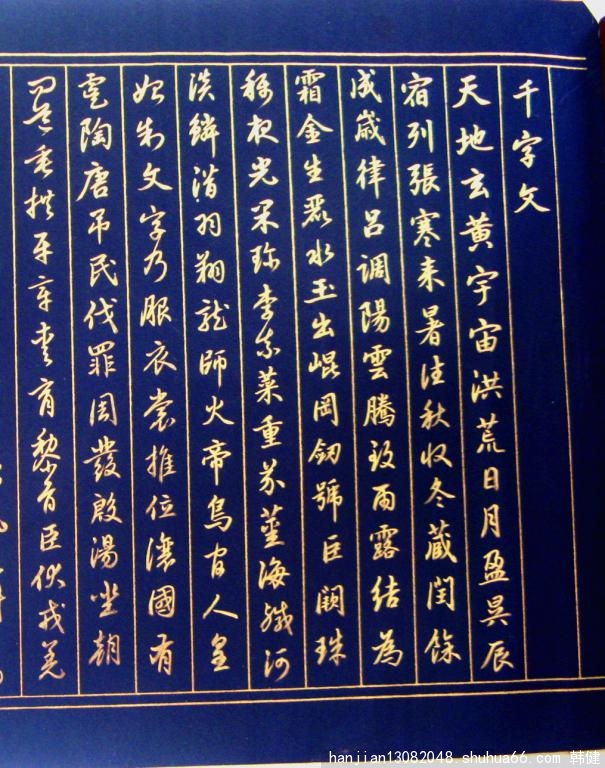 千字文
天地玄黃宇宙洪荒日月盈昃辰
宿列張寒来暑往秋收冬蔵閏餘
成嵗律呂調陽雲騰致雨露結為
霜金生麗水玉出崐岡劒號巨闕珠
稱夜光果珍李柰菜重芥薑海鹹河
淡鱗潛羽翔龍師火帝鳥官人皇
始制文字乃服衣裳推位讓國有
虞陶唐吊民伐罪周發殷湯坐朝
問道垂拱平章愛育黎首臣伏戎羌
hanjian13082048.shuhua66.com 韩健